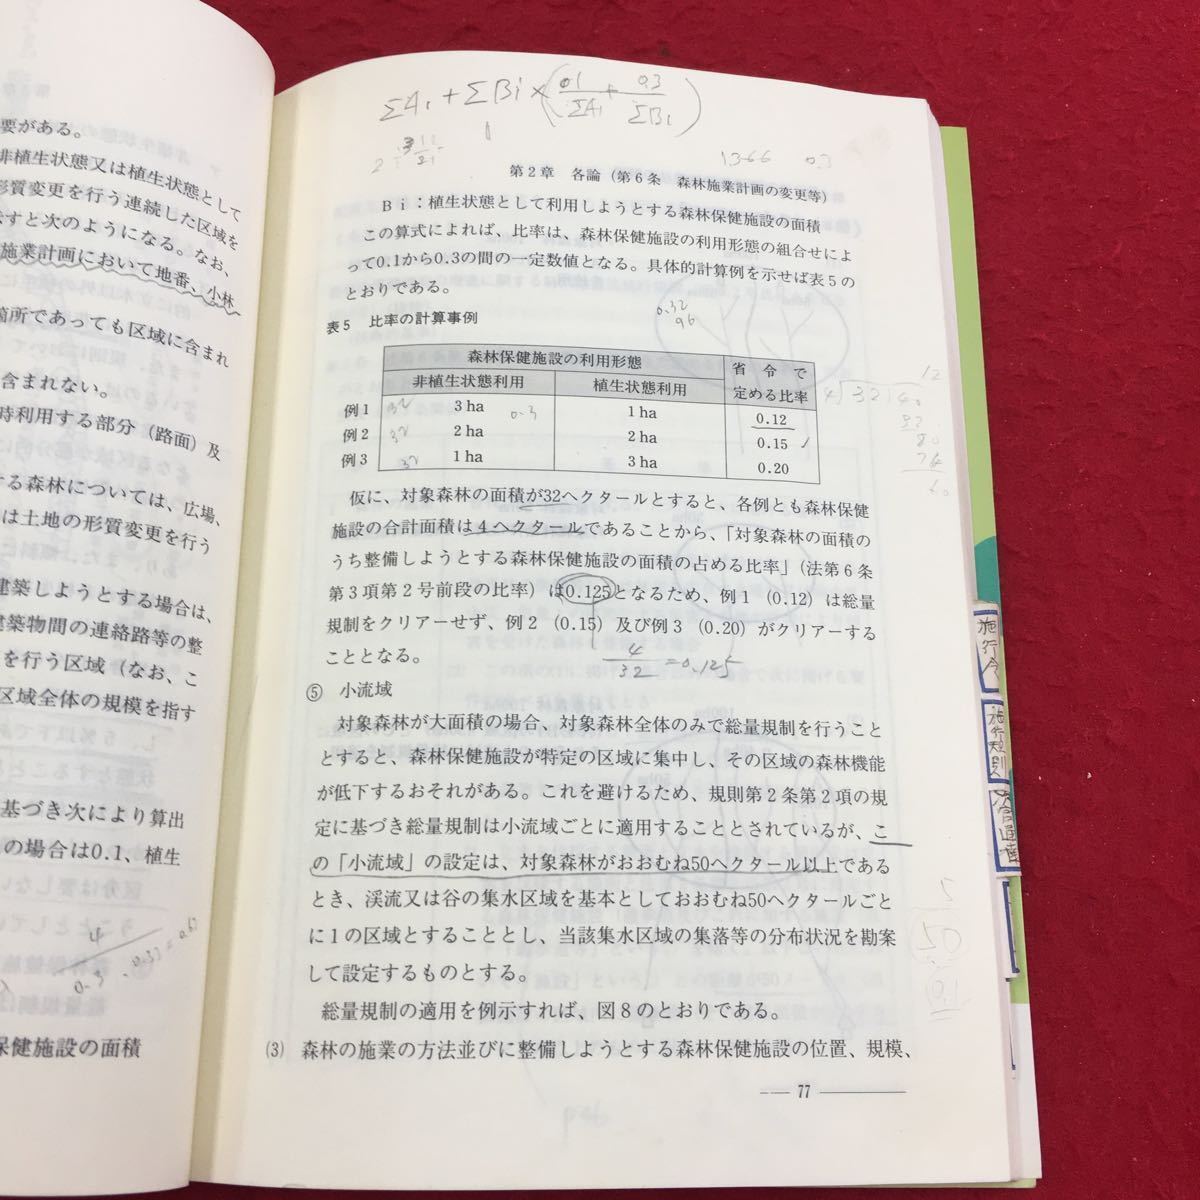 要がある。
非植生状態又は植生状態として
形質変更を行う連続した区域を
示すと次のようになる。なお、
施業計画において地番、小林
箇所であっても区域に含まれ
含まれない。
時利用する部分（路面）及
する森林については、広場、
は土地の形質変更を行う
建築しようとする場合は、
建築物間の連絡路等の整
を行う区域（なお、こ
区域全体の規模を指す
基づき次により算出
の場合は0.1、植生
保健施設の面積
ΣAi + ΣBi × (0.1/ΣAi + 0.3/ΣBi)
1366 0.3
第2章 各論（第6条 森林施業計画の変更等）
Bi：植生状態として利用しようとする森林保健施設の面積
この算式によれば、比率は、森林保健施設の利用形態の組合せによ
って0.1から0.3の間の一定数値となる。具体的計算例を示せば表5の
とおりである。
0.32
96
表5 比率の計算事例
森林保健施設の利用形態 省令で
非植生状態利用 植生状態利用 定める比率
例1 32 3 ha 0.3 1 ha 0.12
例2 32 2 ha 2 ha 0.15
例3 32 1 ha 3 ha 0.20
仮に、対象森林の面積が32ヘクタールとすると、各例とも森林保健
施設の合計面積は4ヘクタールであることから、「対象森林の面積の
うち整備しようとする森林保健施設の面積の占める比率」（法第6条
第3項第2号前段の比率）は0.125となるため、例1（0.12）は総量
規制をクリアーせず、例2（0.15）及び例3（0.20）がクリアーする
こととなる。
4/32 = 0.125
⑤ 小流域
対象森林が大面積の場合、対象森林全体のみで総量規制を行うこと
とすると、森林保健施設が特定の区域に集中し、その区域の森林機能
が低下するおそれがある。これを避けるため、規則第2条第2項の規
定に基づき総量規制は小流域ごとに適用することとされているが、こ
の「小流域」の設定は、対象森林がおおむね50ヘクタール以上である
とき、渓流又は谷の集水区域を基本としておおむね50ヘクタールごと
に1の区域とすることとし、当該集水区域の集落等の分布状況を勘案
して設定するものとする。
総量規制の適用を例示すれば、図8のとおりである。
(3) 森林の施業の方法並びに整備しようとする森林保健施設の位置、規模、
77
施行令
施行規則